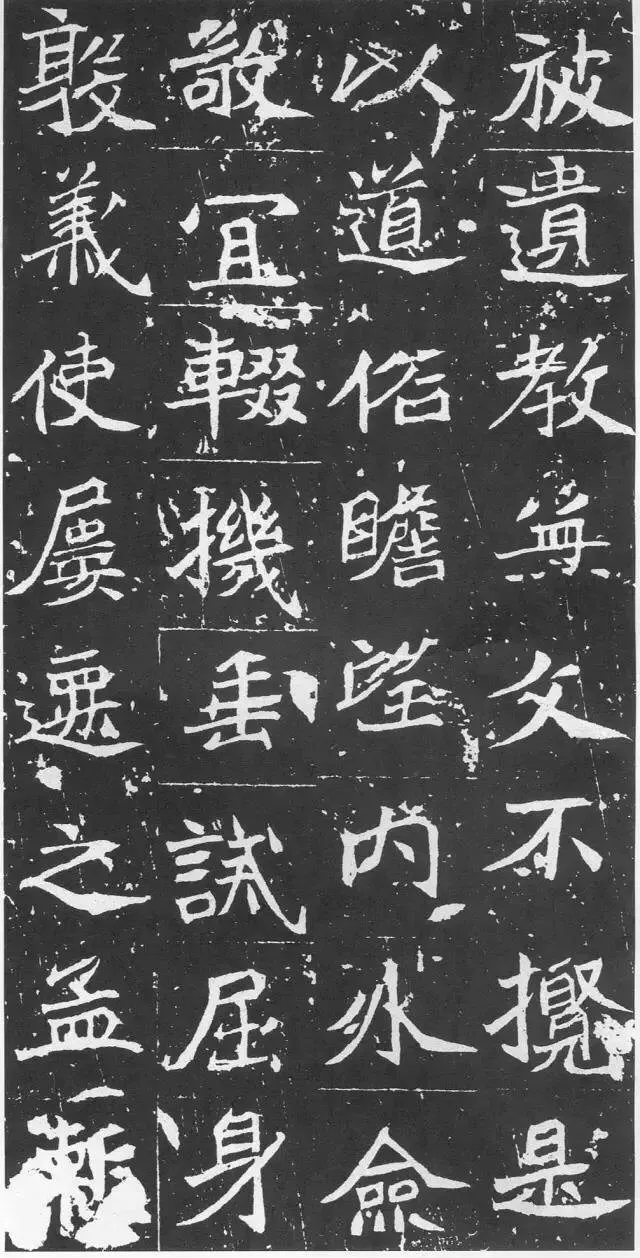 被遺教無文不攬是
以道俗瞻望内外僉
敬宜輟機垂試屈身
義使屢遷之孟